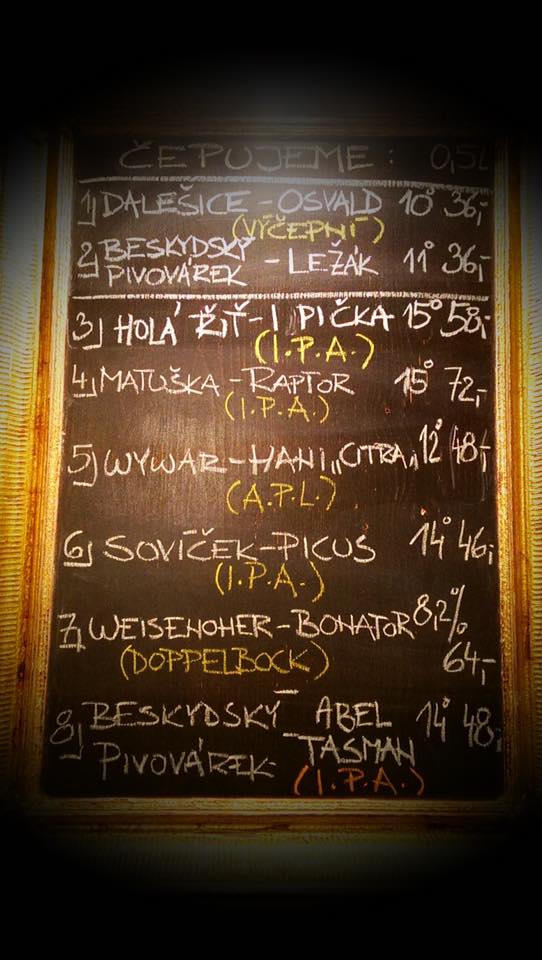 ČEPUJEME: 0,5L
1) DALEŠICE - OSVALD 10° 36,-
(VÝČEPNÍ)
2) BESKYDSKÝ PIVOVÁREK - LEŽÁK 11° 36,-
3) HOLÁ ŘIŤ - I PIČKA 15° 58,-
(I.P.A.)
4) MATUŠKA - RAPTOR 15° 72,-
(I.P.A.)
5) WYWAR - HANI „CITRA„ 12° 48,-
(A.P.L.)
6) SOVÍČEK - PICUS 14° 46,-
(I.P.A.)
7) WEISENOHER - BONATOR 8,2%
(DOPPELBOCK) 64,-
8) BESKYDSKÝ - ABEL 14° 48,-
PIVOVÁREK - TASMAN
(I.P.A.)